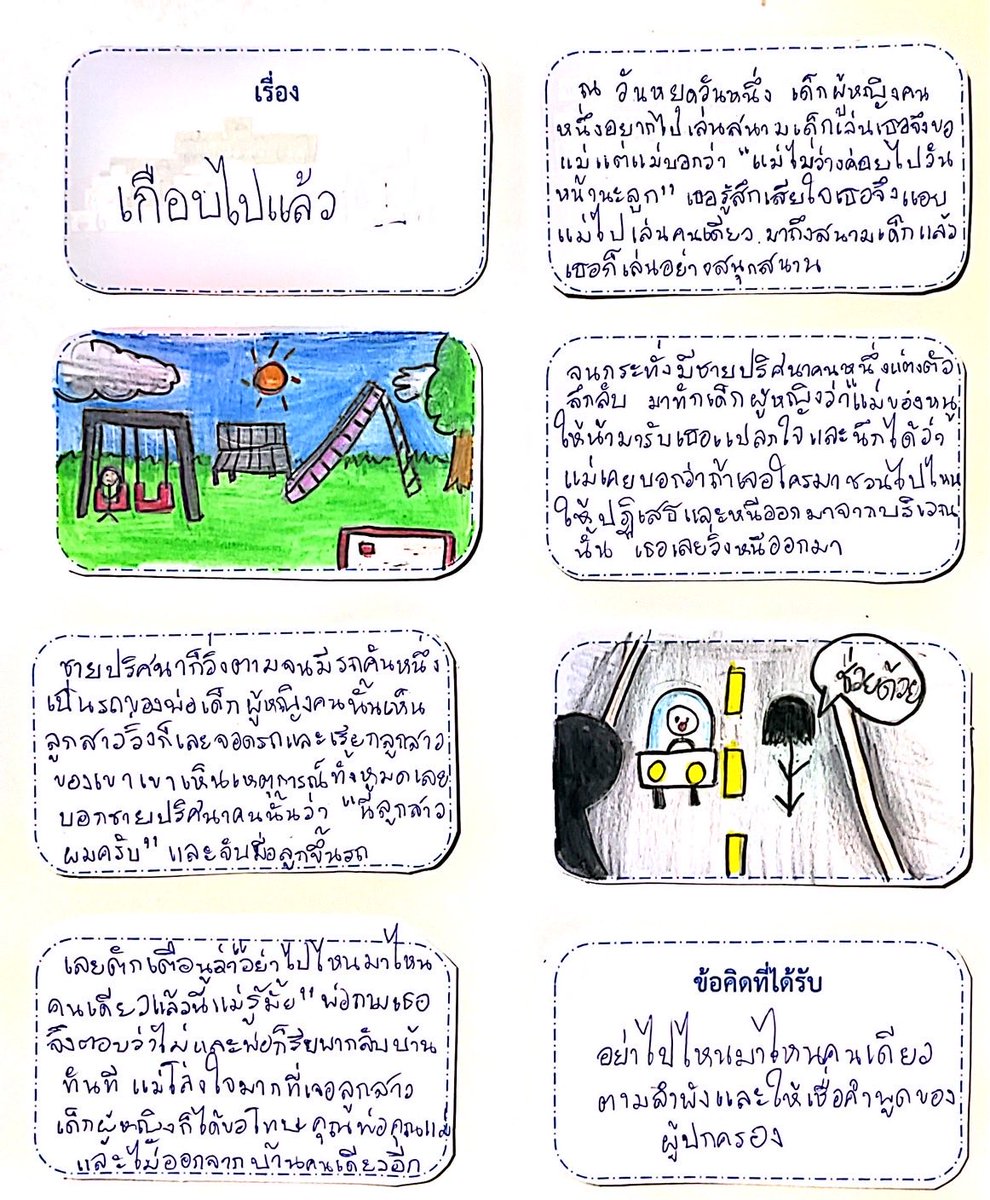 เรื่อง
เกือบไปแล้ว
ณ วันหยุดวันหนึ่ง เด็กผู้หญิงคน
หนึ่งอยากไปเล่นสนามเด็กเล่นเธอจึงขอ
แม่แต่แม่บอกว่า "แม่ไม่ว่างค่อยไปวัน
หน้านะลูก" เธอรู้สึกเสียใจเธอจึงแอบ
แม่ไปเล่นคนเดียว มาถึงสนามเด็กแล้ว
เธอก็เล่นอย่างสนุกสนาน
จนกระทั่งมีชายปริศนาคนหนึ่งแต่งตัว
ลึกลับ มาทักเด็กผู้หญิงว่าแม่ของหนู
ให้น้ามารับเธอแปลกใจและนึกได้ว่า
แม่เคยบอกว่าถ้าเจอใครมาชวนไปไหน
ให้ปฏิเสธและหนีออกมาจากบริเวณ
นั้น เธอเลยวิ่งหนีออกมา
ชายปริศนาก็วิ่งตามจนมีรถคันหนึ่ง
เป็นรถของพ่อเด็กผู้หญิงคนนั้นเห็น
ลูกสาววิ่งก็เลยจอดรถและเรียกลูกสาว
ของเขาเขาเห็นเหตุการณ์ทั้งหมดเลย
บอกชายปริศนาคนนั้นว่า "นี่ลูกสาว
ผมครับ" และจับมือลูกขึ้นรถ
ช่วยด้วย
เลยตักเตือนว่า"อย่าไปไหนมาไหน
คนเดียวแล้วนี่แม่รู้มั้ย" พ่อถามเธอ
จึงตอบว่าไม่และพ่อก็รีบพากลับบ้าน
ทันที แม่โล่งใจมากที่เจอลูกสาว
เด็กผู้หญิงก็ได้ขอโทษคุณพ่อคุณแม่
และไม่ออกจากบ้านคนเดียวอีก
ข้อคิดที่ได้รับ
อย่าไปไหนมาไหนคนเดียว
ตามลำพังและให้เชื่อคำพูดของ
ผู้ปกครอง